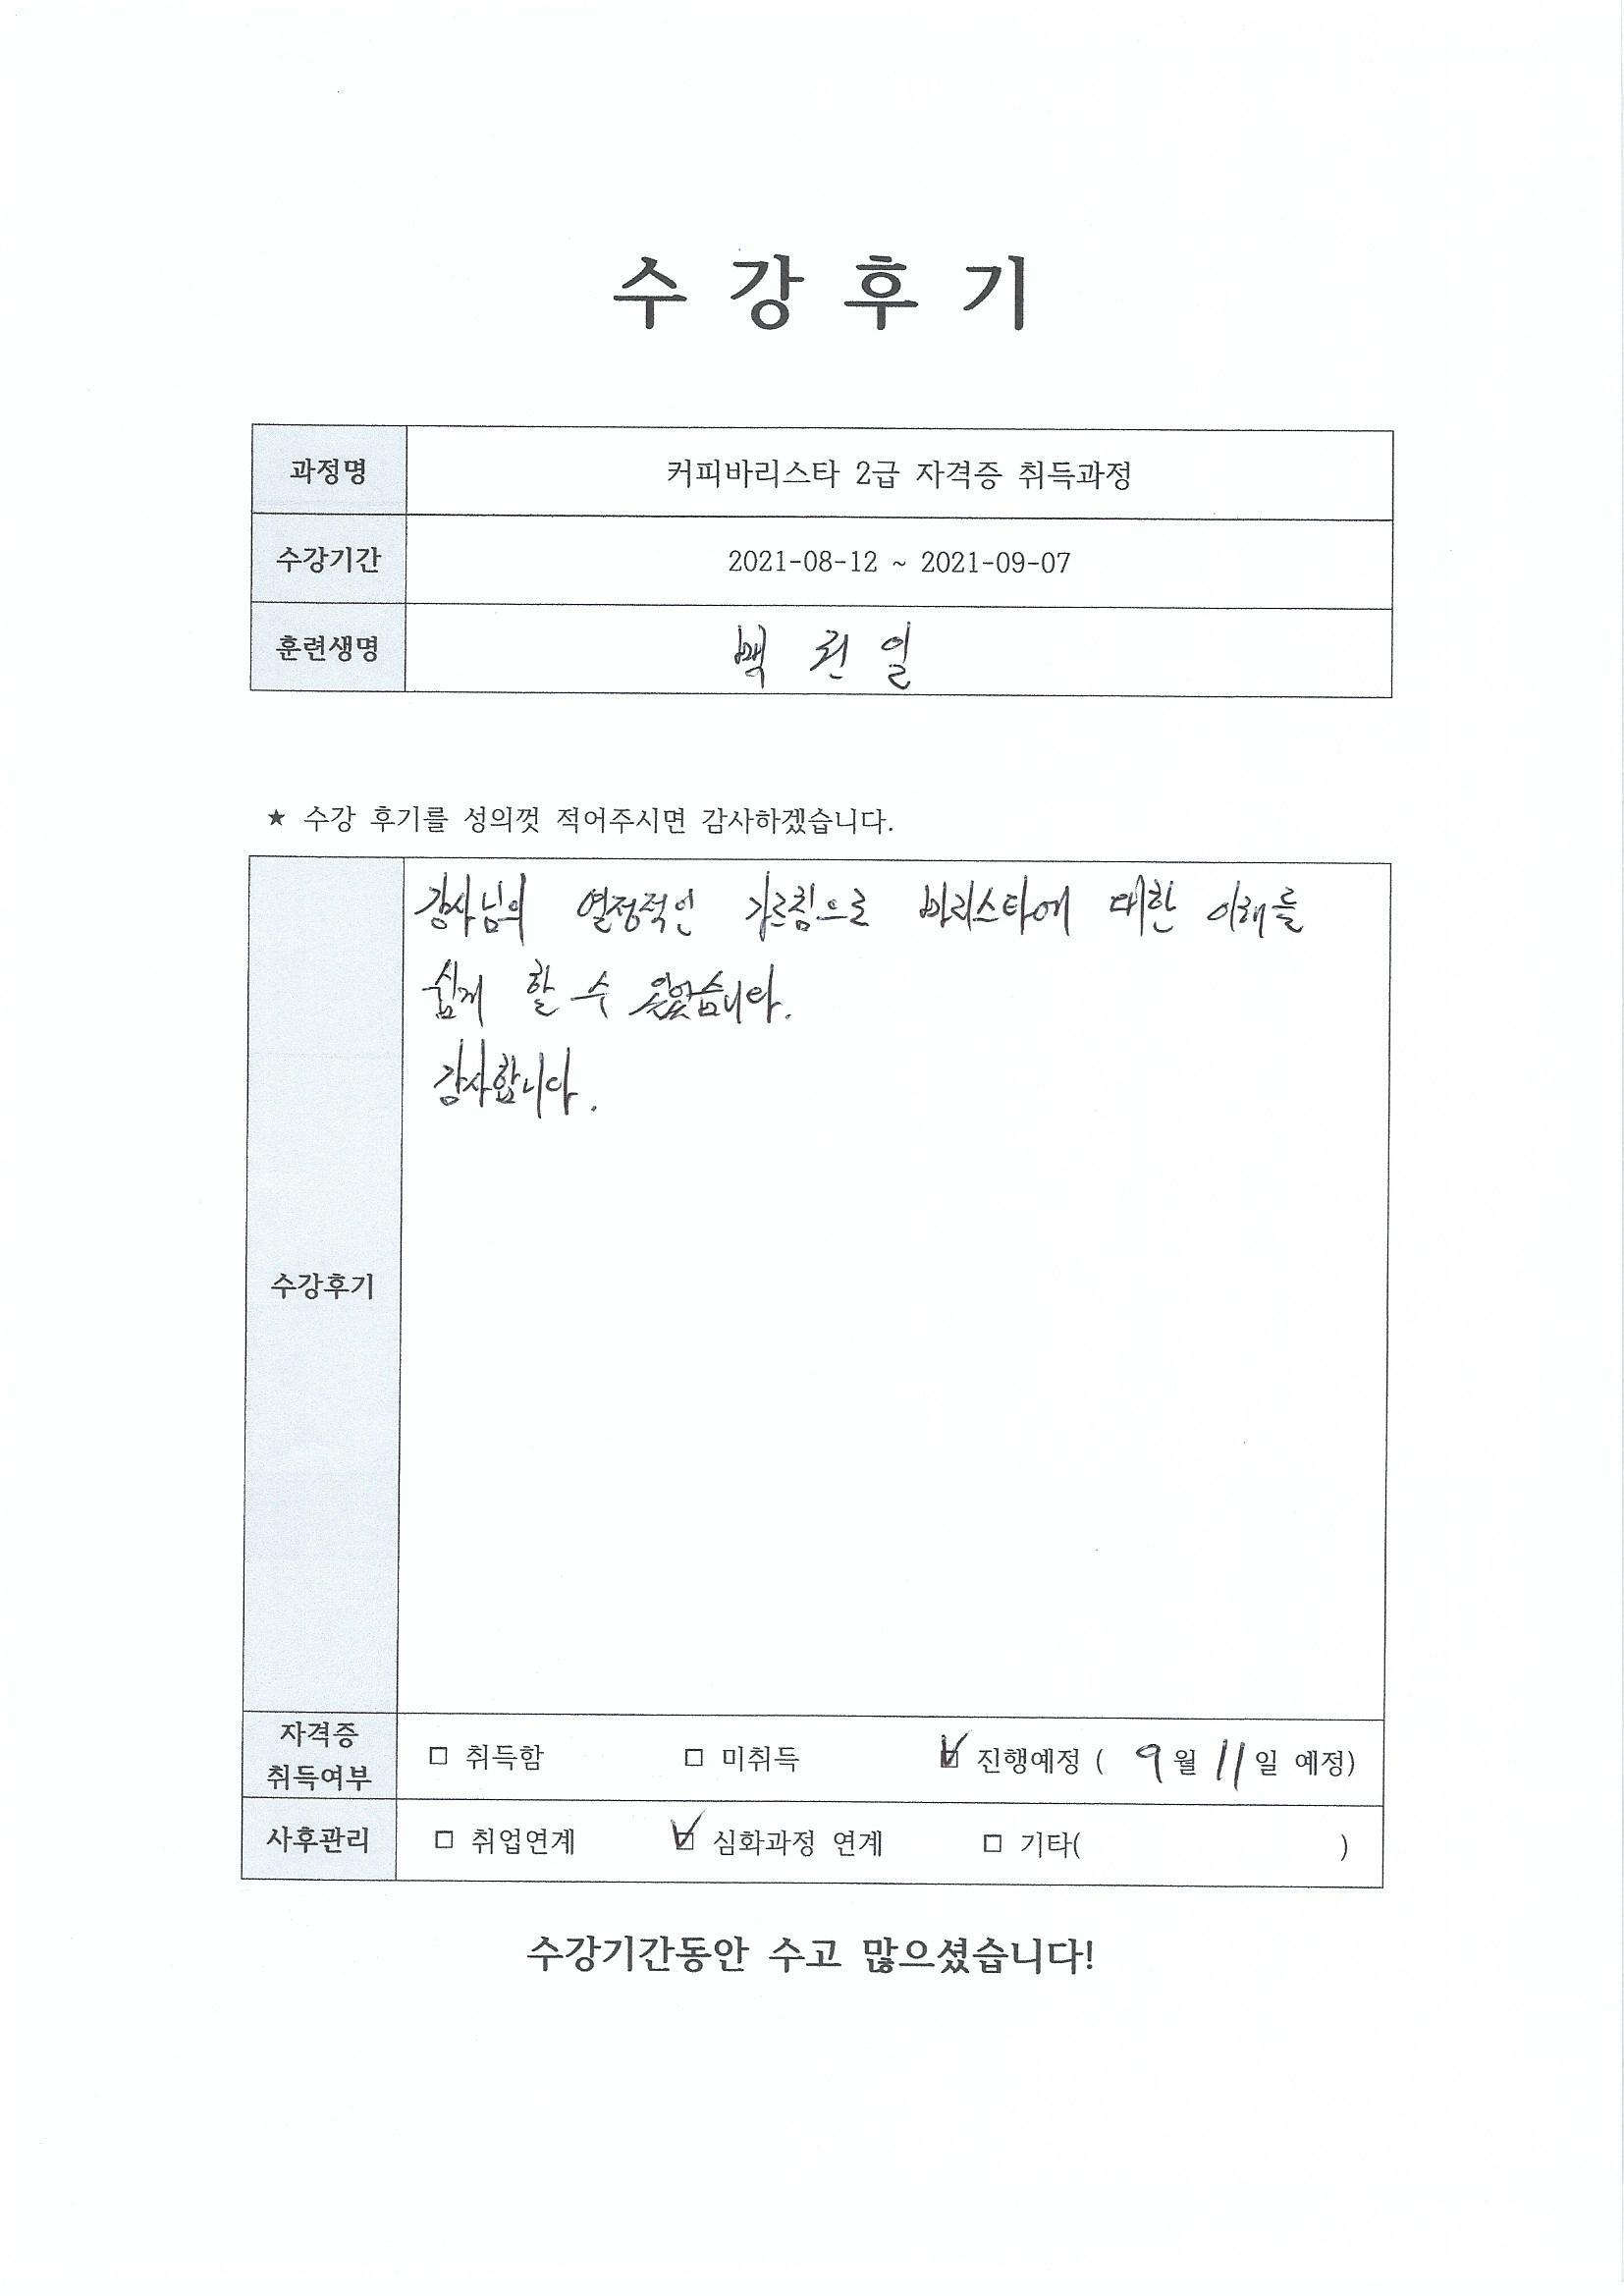 수 강 후 기
과정명 커피바리스타 2급 자격증 취득과정
수강기간 2021-08-12 ~ 2021-09-07
훈련생명 백 일
★ 수강 후기를 성의껏 적어주시면 감사하겠습니다.
강사님의 열정적인 가르침으로 바리스타에 대한 이해를
쉽게 할 수 있었습니다.
감사합니다.
수강후기
자격증
취득여부
□ 취득함 □ 미취득 ☑ 진행예정 ( 9월 11일 예정)
사후관리 □ 취업연계 ☑ 심화과정 연계 □ 기타( )
수강기간동안 수고 많으셨습니다!